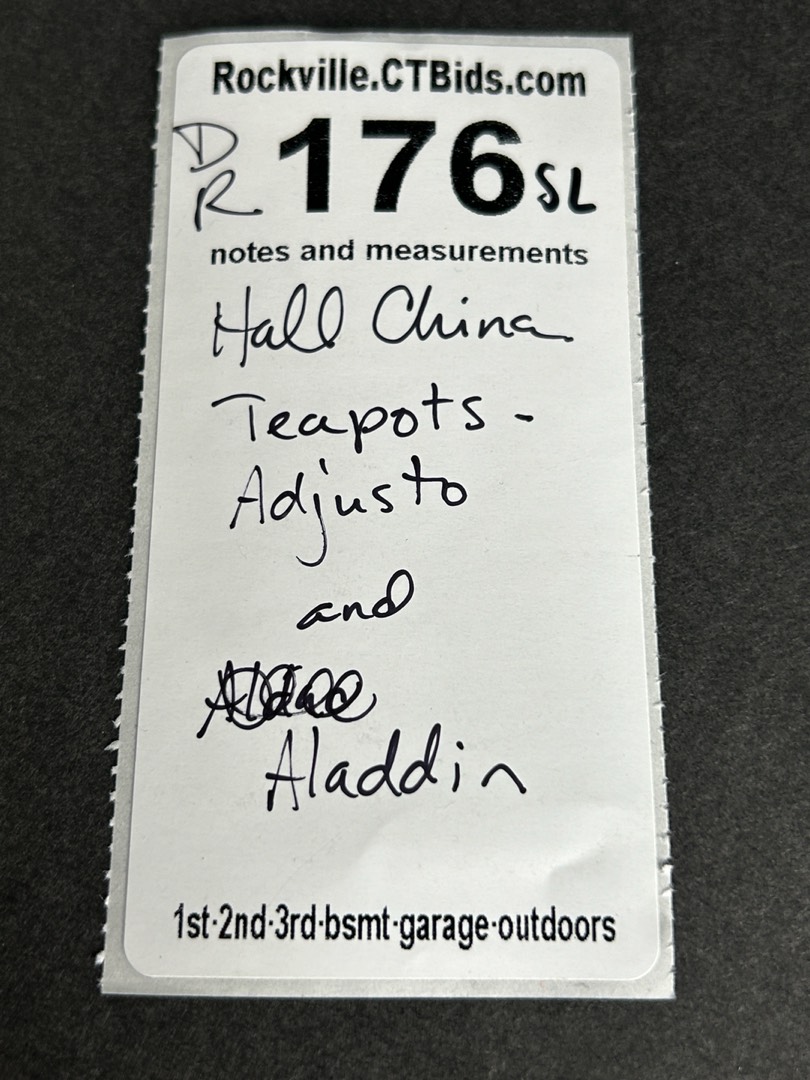 Rockville.CTBids.com
D
R 176 SL
notes and measurements
Hall China
Teapots -
Adjusto
and
Aladdin
1st·2nd·3rd·bsmt·garage·outdoors